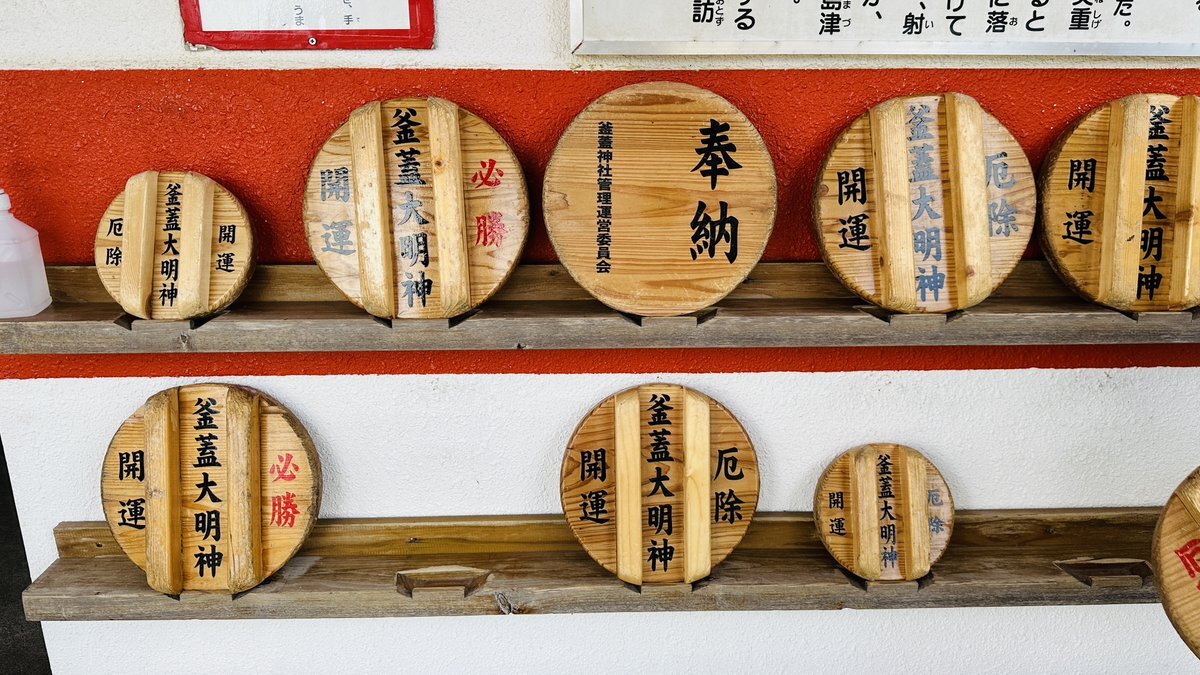 た。
ると
に落
けて
、射
が、
島津
訪
開運
釜蓋大明神
厄除
必勝
釜蓋大明神
開運
奉納
釜蓋神社管理運営委員会
厄除
釜蓋大明神
開運
釜蓋大明神
開運
必勝
釜蓋大明神
開運
厄除
釜蓋大明神
開運
厄除
釜蓋大明神
開運